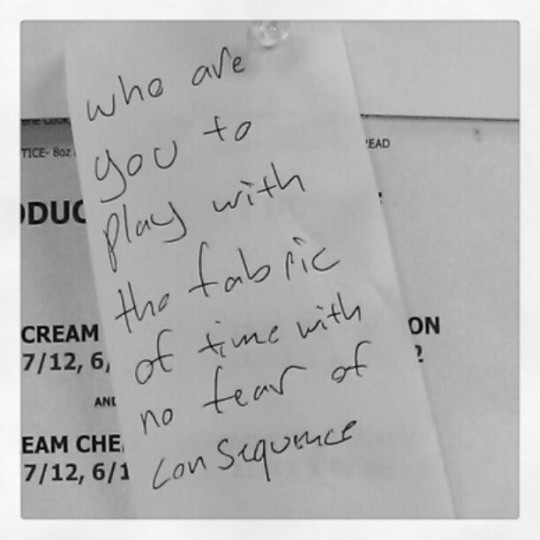 who are
you to
play with
the fabric
of time with
no fear of
consequence
TICE- 8oz
EAD
ODUC
CREAM
ON
7/12, 6,
2
AND
EAM CHE
7/12, 6/1